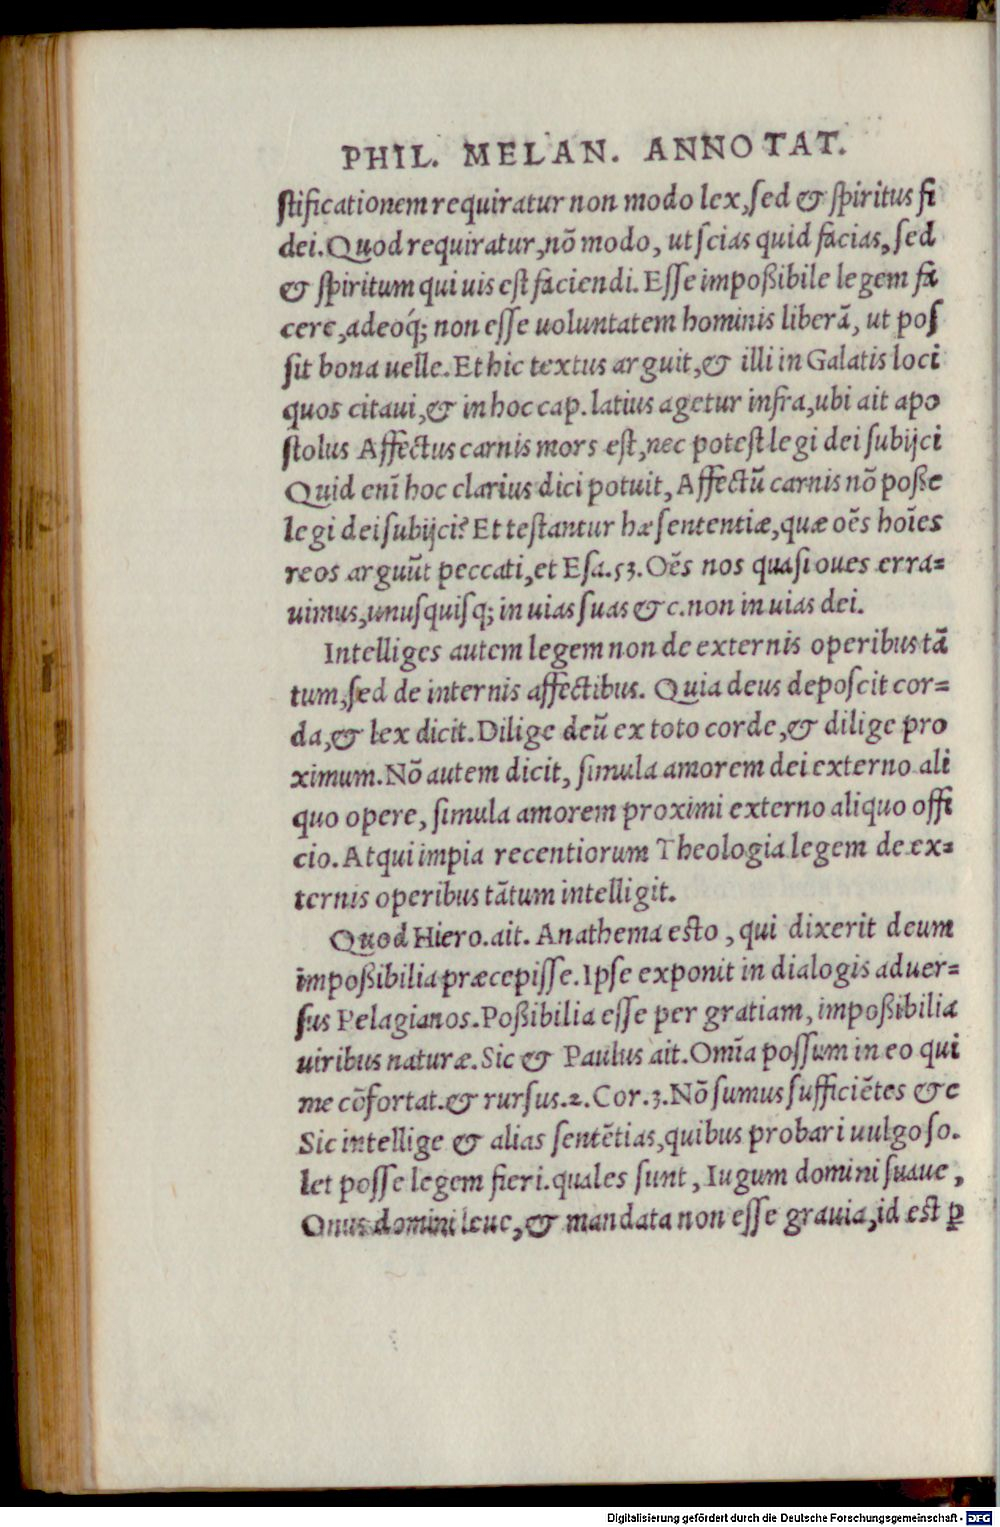 PHIL. MELAN. ANNOTAT.
ſtificationem requiratur non modo lex, ſed & ſpiritus fi
dei. Quod requiratur, nõ modo, ut ſcias quid facias, ſed
& ſpiritum qui uis eſt faciendi. Eſſe impoßibile legem fa
cere, adeoq́; non eſſe uoluntatem hominis liberã, ut poſ
ſit bona uelle. Et hic textus arguit, & illi in Galatis loci
quos citaui, & in hoc cap. latius agetur infra, ubi ait apo
ſtolus Affectus carnis mors eſt, nec poteſt legi dei ſubijci
Quid enĩ hoc clarius dici potuit, Affectũ carnis nõ poße
legi dei ſubijci? Et teſtantur hæ ſententiæ, quæ oẽs hoĩes
reos arguũt peccati, et Eſa. 53. Oẽs nos quaſi oues erra-
uimus, unuſquiſq; in uias ſuas &c. non in uias dei.
Intelliges autem legem non de externis operibus tã
tum, ſed de internis affectibus. Quia deus depoſcit cor-
da, & lex dicit. Dilige deũ ex toto corde, & dilige pro
ximum. Nõ autem dicit, ſimula amorem dei externo ali
quo opere, ſimula amorem proximi externo aliquo offi
cio. Atqui impia recentiorum Theologia legem de ex-
ternis operibus tãtum intelligit.
Quod Hiero. ait. Anathema esto, qui dixerit deum
impoßibilia præcepiſſe. Ipſe exponit in dialogis aduer-
ſus Pelagianos. Poßibilia eſſe per gratiam, impoßibilia
uiribus naturæ. Sic & Paulus ait. Omĩa poſſum in eo qui
me cõfortat. & rurſus. 2. Cor. 3. Nõ ſumus ſufficiẽtes &c
Sic intellige & alias ſentẽtias, quibus probari uulgo ſo.
let poſſe legem fieri. quales ſunt, Iugum domini ſuaue,
Onus domini leue, & mandata non eſſe grauia, id est ꝑ
Digitalisierung gefördert durch die Deutsche Forschungsgemeinschaft - DFG